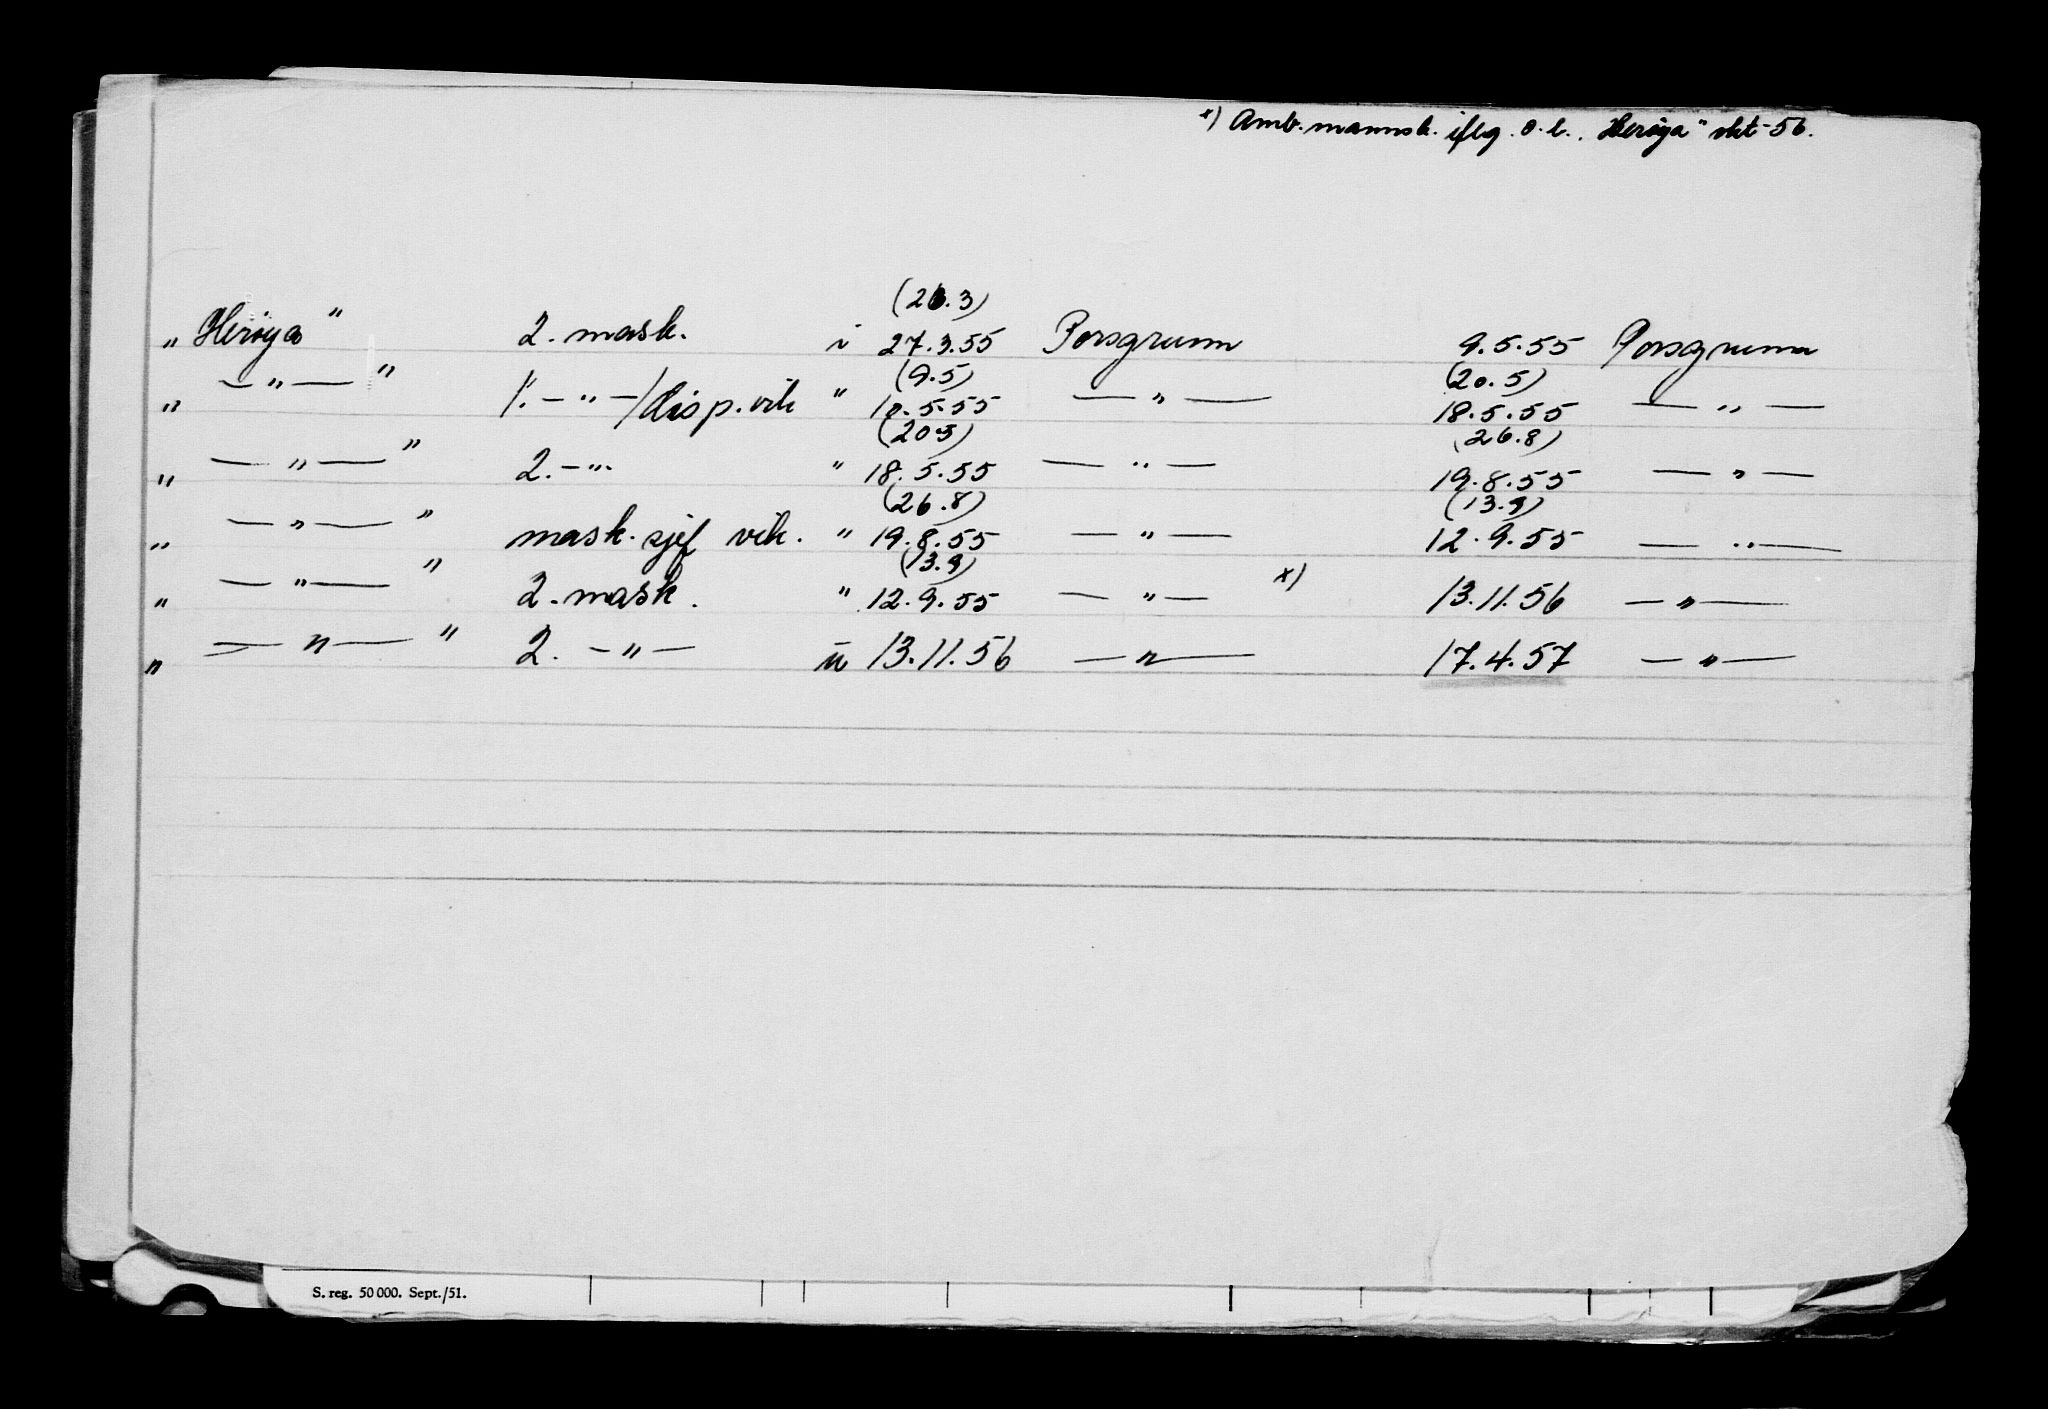 x) Amb. mannsk. iflg. o.l. „Herøya" okt - 56.
(26.3)
„Herøya" 2. mask. i 27.3.55 Porsgrunn 9.5.55 Porsgrunn
(9.5) (20.5)
„ — " — " 1. — " — /disp. vik " 10.5.55 — " — 18.5.55 — " —
(20.5) (26.8)
„ — " — " 2. — " " 18.5.55 — " — 19.8.55 — " —
(26.8) (13.9)
„ — " — " mask. sjef vik. " 19.8.55 — " — 12.9.55 — " —
(13.9)
„ — " — " 2. mask. " 12.9.55 — " — x) 13.11.56 — " —
„ — " — " 2. — " — u 13.11.56 — " — 17.4.57 — " —
S. reg. 50 000. Sept./51.